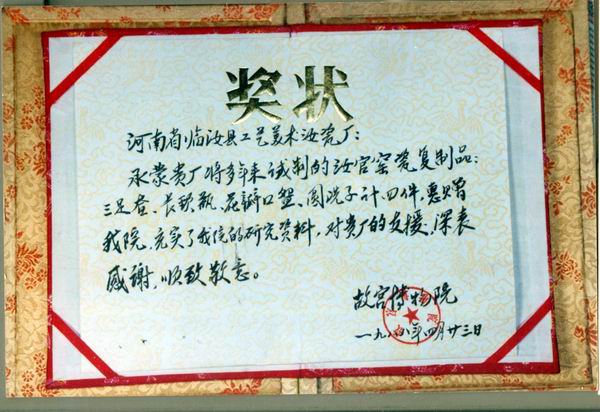 奖状
河南省临汝县工艺美术汝瓷厂：
承蒙贵厂将多年来试制的汝官窑瓷复制品：
三足奁、长颈瓶、花瓣口盘、圆洗子计四件，惠赠
我院，充实了我院的研究资料，对贵厂的支援，深表
感谢，顺致敬意。
故宫博物院
一九八八年四月廿三日